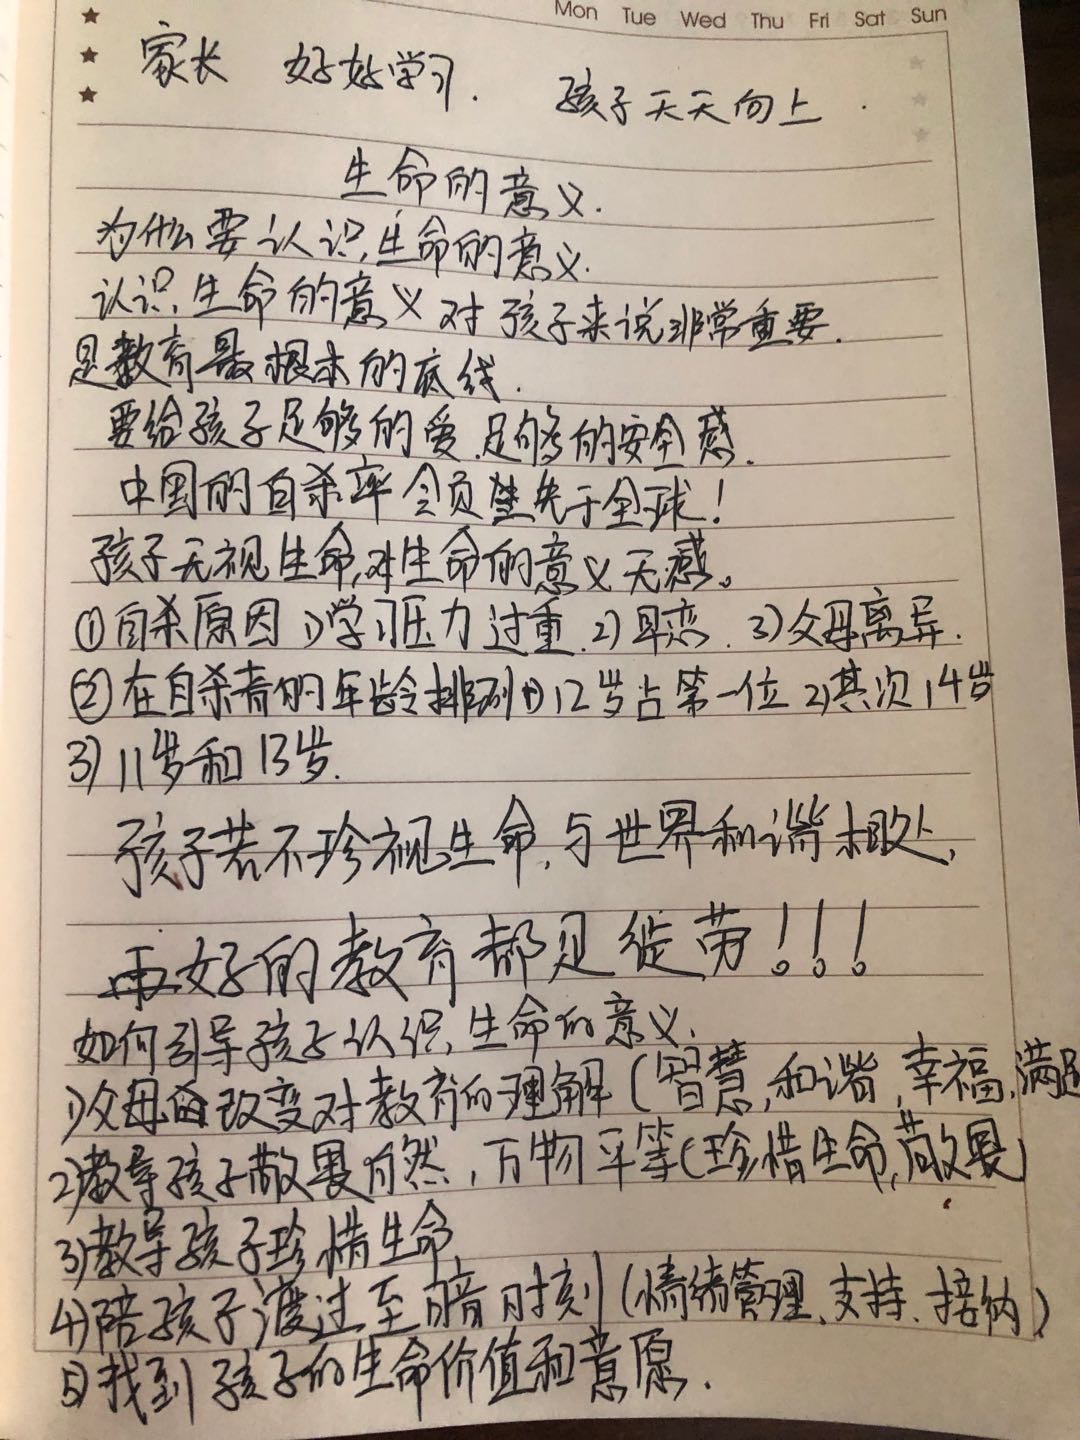 Mon Tue Wed Thu Fri Sat Sun
家长 好好学习. 孩子天天向上.
生命的意义.
为什么要认识生命的意义.
认识生命的意义对孩子来说非常重要.
是教育最根本的底线.
要给孩子足够的爱.足够的安全感.
中国的自杀率令人领先于全球!
孩子无视生命,对生命的意义无感。
①自杀原因 1)学习压力过重.2)早恋.3)父母离异.
②在自杀者的年龄排列1)12岁占第一位2)其次14岁
3)11岁和13岁.
孩子若不珍视生命,与世界和谐相处,
再好的教育都是徒劳!!!
如何引导孩子认识生命的意义.
1)父母的改变对教育的理解(智慧,和谐,幸福,满足
2)教导孩子敬畏自然,万物平等(珍惜生命,敬畏)
3)教导孩子珍惜生命
4)陪孩子渡过至暗时刻(情绪管理、支持、接纳)
5)找到孩子的生命价值和意愿.